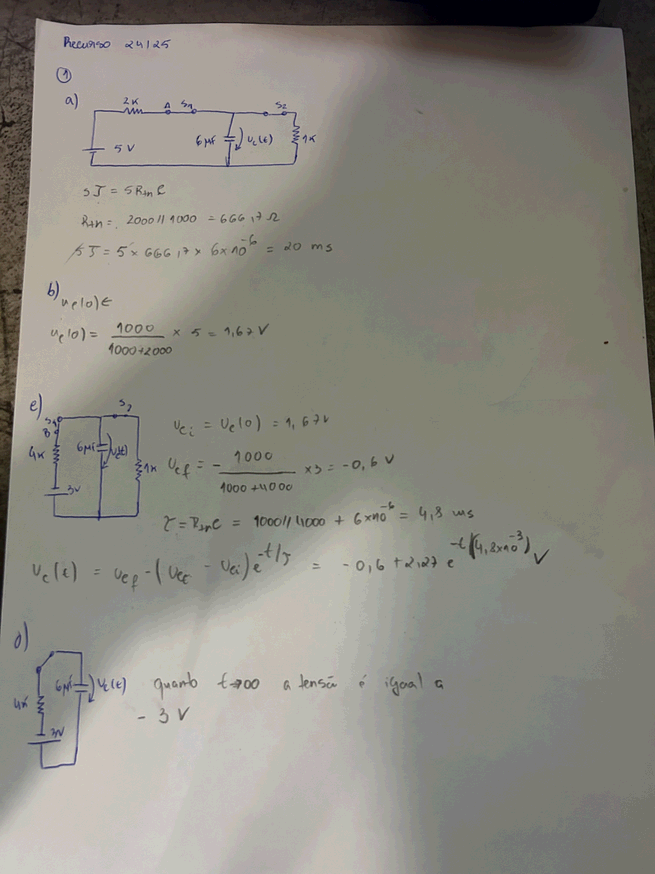 Recurso 24/25
①
a)
2K A S1 S2
5 V 6μF Uc(t) 1K
5J = 5RTHC
RTH = 2000//1000 = 666,7Ω
5J = 5 × 666,7 × 6×10⁻⁶ = 20 ms
b) Uc(0) ∈
Uc(0) = 1000/(1000+2000) × 5 = 1,67 V
c)
S1 S2
B
4K 6μF Uc(t) 1K
3V
Uci = Uc(0) = 1,67V
Ucf = - 1000/(1000+4000) × 3 = -0,6 V
τ = RTHC = 1000//4000 + 6×10⁻⁶ = 4,8 ms
Uc(t) = Ucf - (Ucf - Uci) e^(-t/J) = -0,6 + 2,27 e^(-t/(4,8×10⁻³)) V
d)
4K 6μF Uc(t)
3V
quanto t→∞ a tensã é igual a
- 3 V